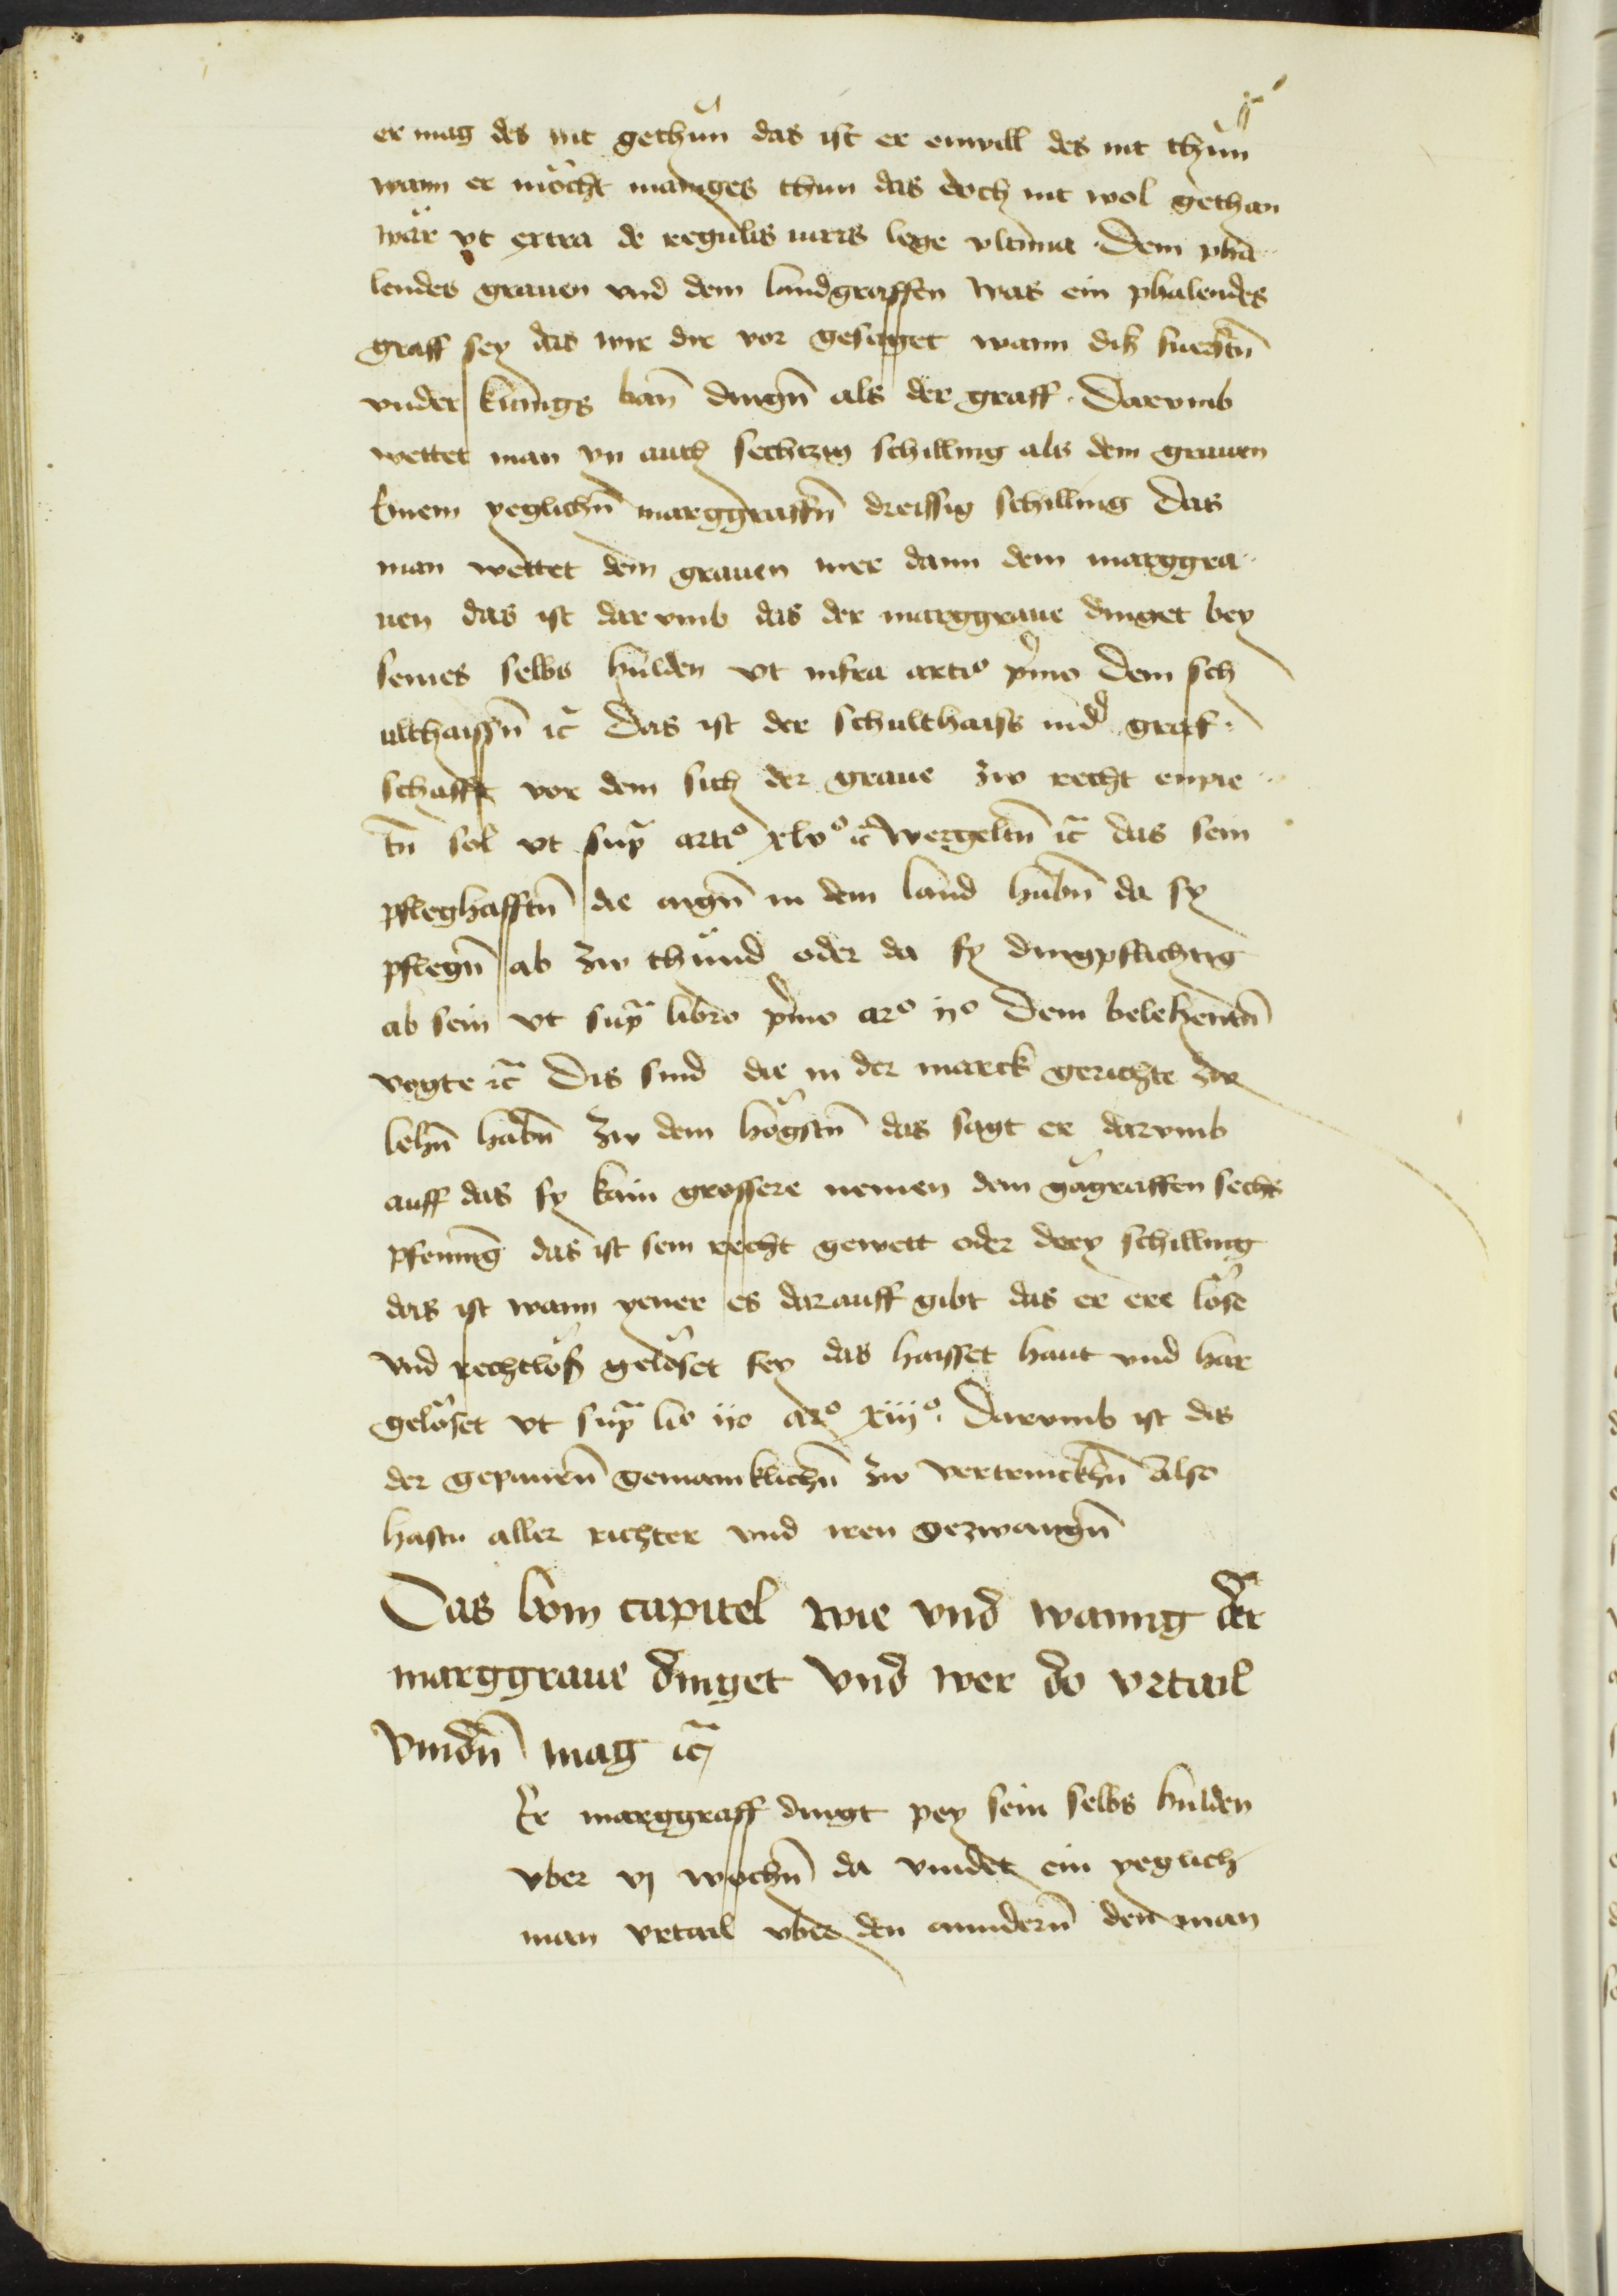 er mag des nit gethun das ist er enwill des nit thun
wann er möcht maniges thun das doch nit wol gethan
wär vt extra de regulis iuris lege vltima · Dem pha
lendes grauen vnd dem landgraffen was ein phalendes
graff sey das wir dir vor gesaget wann diß fursten̄
vnder kunigs ban̄ dingn̄ als der graff · Darvmb
wettet man yn auch sechtzig schilling als dem grauen
Einem yeglichn̄ marggraffn̄ dreissig schilling Das
man wettet dem grauen mer dann dem marggra
uen das ist dar vmb das der marggraue dinget bey
seines selbs hulden vt infra artio pͥmo Dem sch
ulthaissn̄ ꝛc̄ Das ist der schulthaiss in d̄ graf
schafft vor dem sich der graue zw recht enpie
tn̄ sol vt sup̄ artio xlvo ꝛc̄ wergeltn̄ ꝛc̄ das sein
pfleghafftn̄ die aign̄ in dem land habn̄ da sy
pflegn̄ ab zw thund oder da sy dingpflichtig
ab sein vt sup̄ libro pͥmo aro ijo Dem belehentn̄
vogte ꝛc̄ Dis sind die in der marck gerichte zw
lehn̄ habn̄ zw dem högstn̄ das sagt er darvmb
auff das sy kain grossere nemen dem gögraffen sechs
pfening das ist sein recht gewett oder drey schilling
das ist wann yener es darauff gibt das er ere löse
vnd rechtloß gelöset sey das haisset haut vnd har
gelöset vt sup̄ lio ijo aro xiijo · Darvmb ist dis
der gepauren̄ gemainklichn̄ zw vertrinckhn̄ Also
hastu aller richter vnd iren gezwangn̄
Das lxvm capitel wie vnd wannig der
marggraue dinget vnd wer do vrtail
vindn̄ mag ꝛc̄
Er marggraff dingt pey sein selbs hulden
vber vj wochn̄ da vindet ein yeglich
man vrtail vber den anndern̄ den man